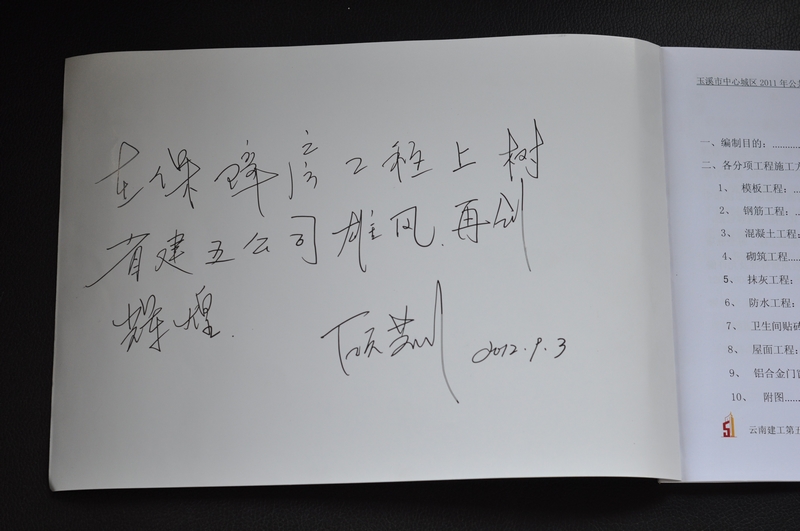 在保障房工程上树
省建五公司雄风.再创
辉煌.
2012.9.3
玉溪市中心城区 2011 年公
一、编制目的：
二、各分项工程施工
1、 模板工程：
2、 钢筋工程：
3、 混凝土工程：
4、 砌筑工程
5、 抹灰工程：
6、 防水工程：
7、 卫生间贴砖
8、 屋面工程：
9、 铝合金门窗
10、 附图
云南建工第五